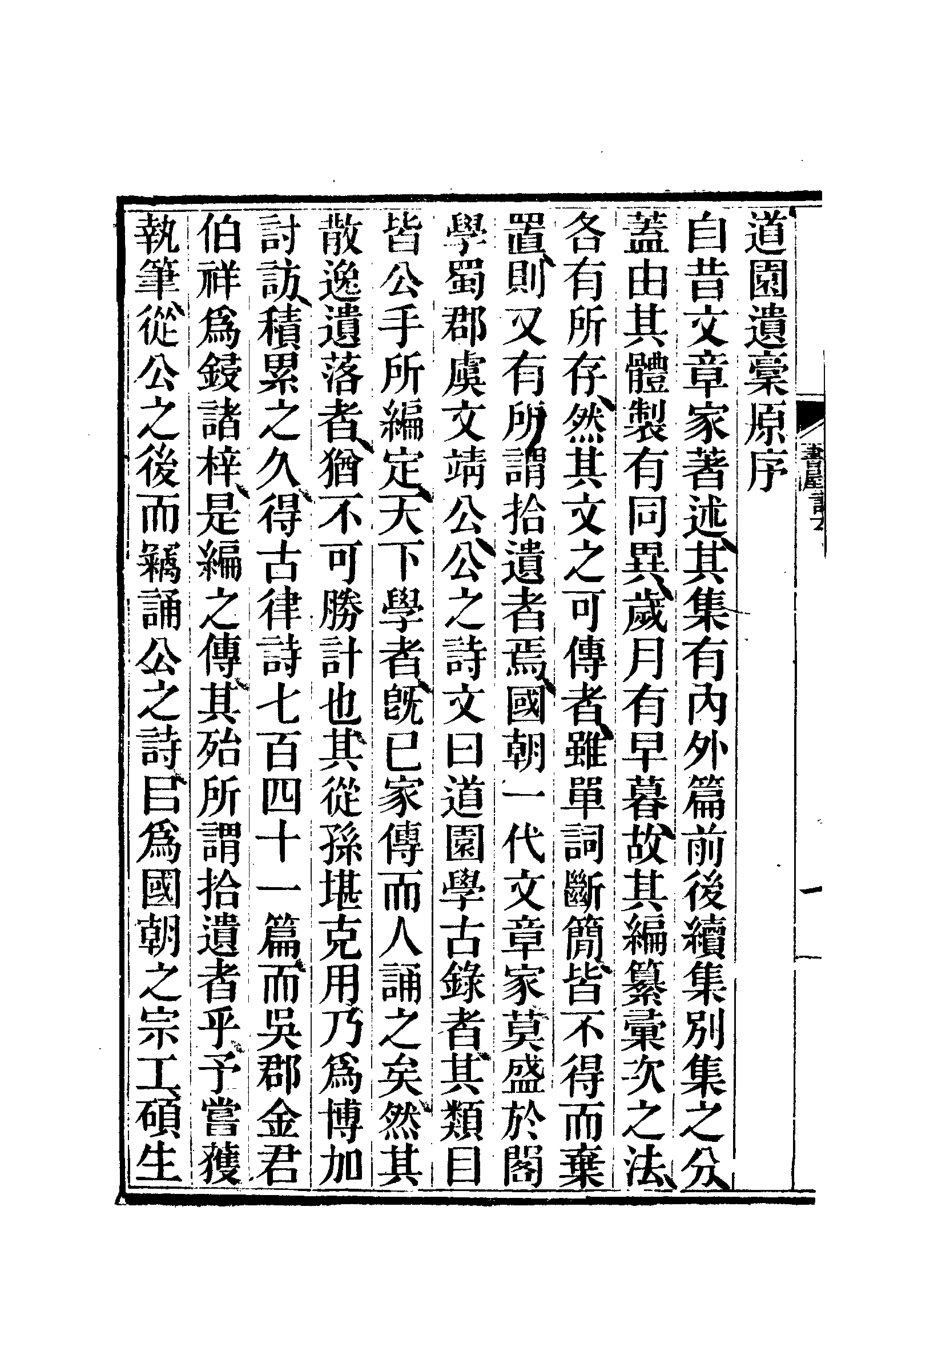 道園遺稾原序
自昔文章家著述其集有內外篇前後續集別集之分
蓋由其體製有同異歲月有早暮故其編纂彙次之法
各有所存然其文之可傳者雖單詞斷簡皆不得而棄
置則又有所謂拾遺者焉國朝一代文章家莫盛於閣
學蜀郡虞文靖公公之詩文曰道園學古錄者其類目
皆公手所編定天下學者旣已家傳而人誦之矣然其
散逸遺落者猶不可勝計也其從孫堪克用乃爲博加
討訪積累之久得古律詩七百四十一篇而吳郡金君
伯祥爲鋟諸梓是編之傳其殆所謂拾遺者乎予嘗獲
執筆從公之後而竊誦公之詩㠯爲國朝之宗工碩生
一